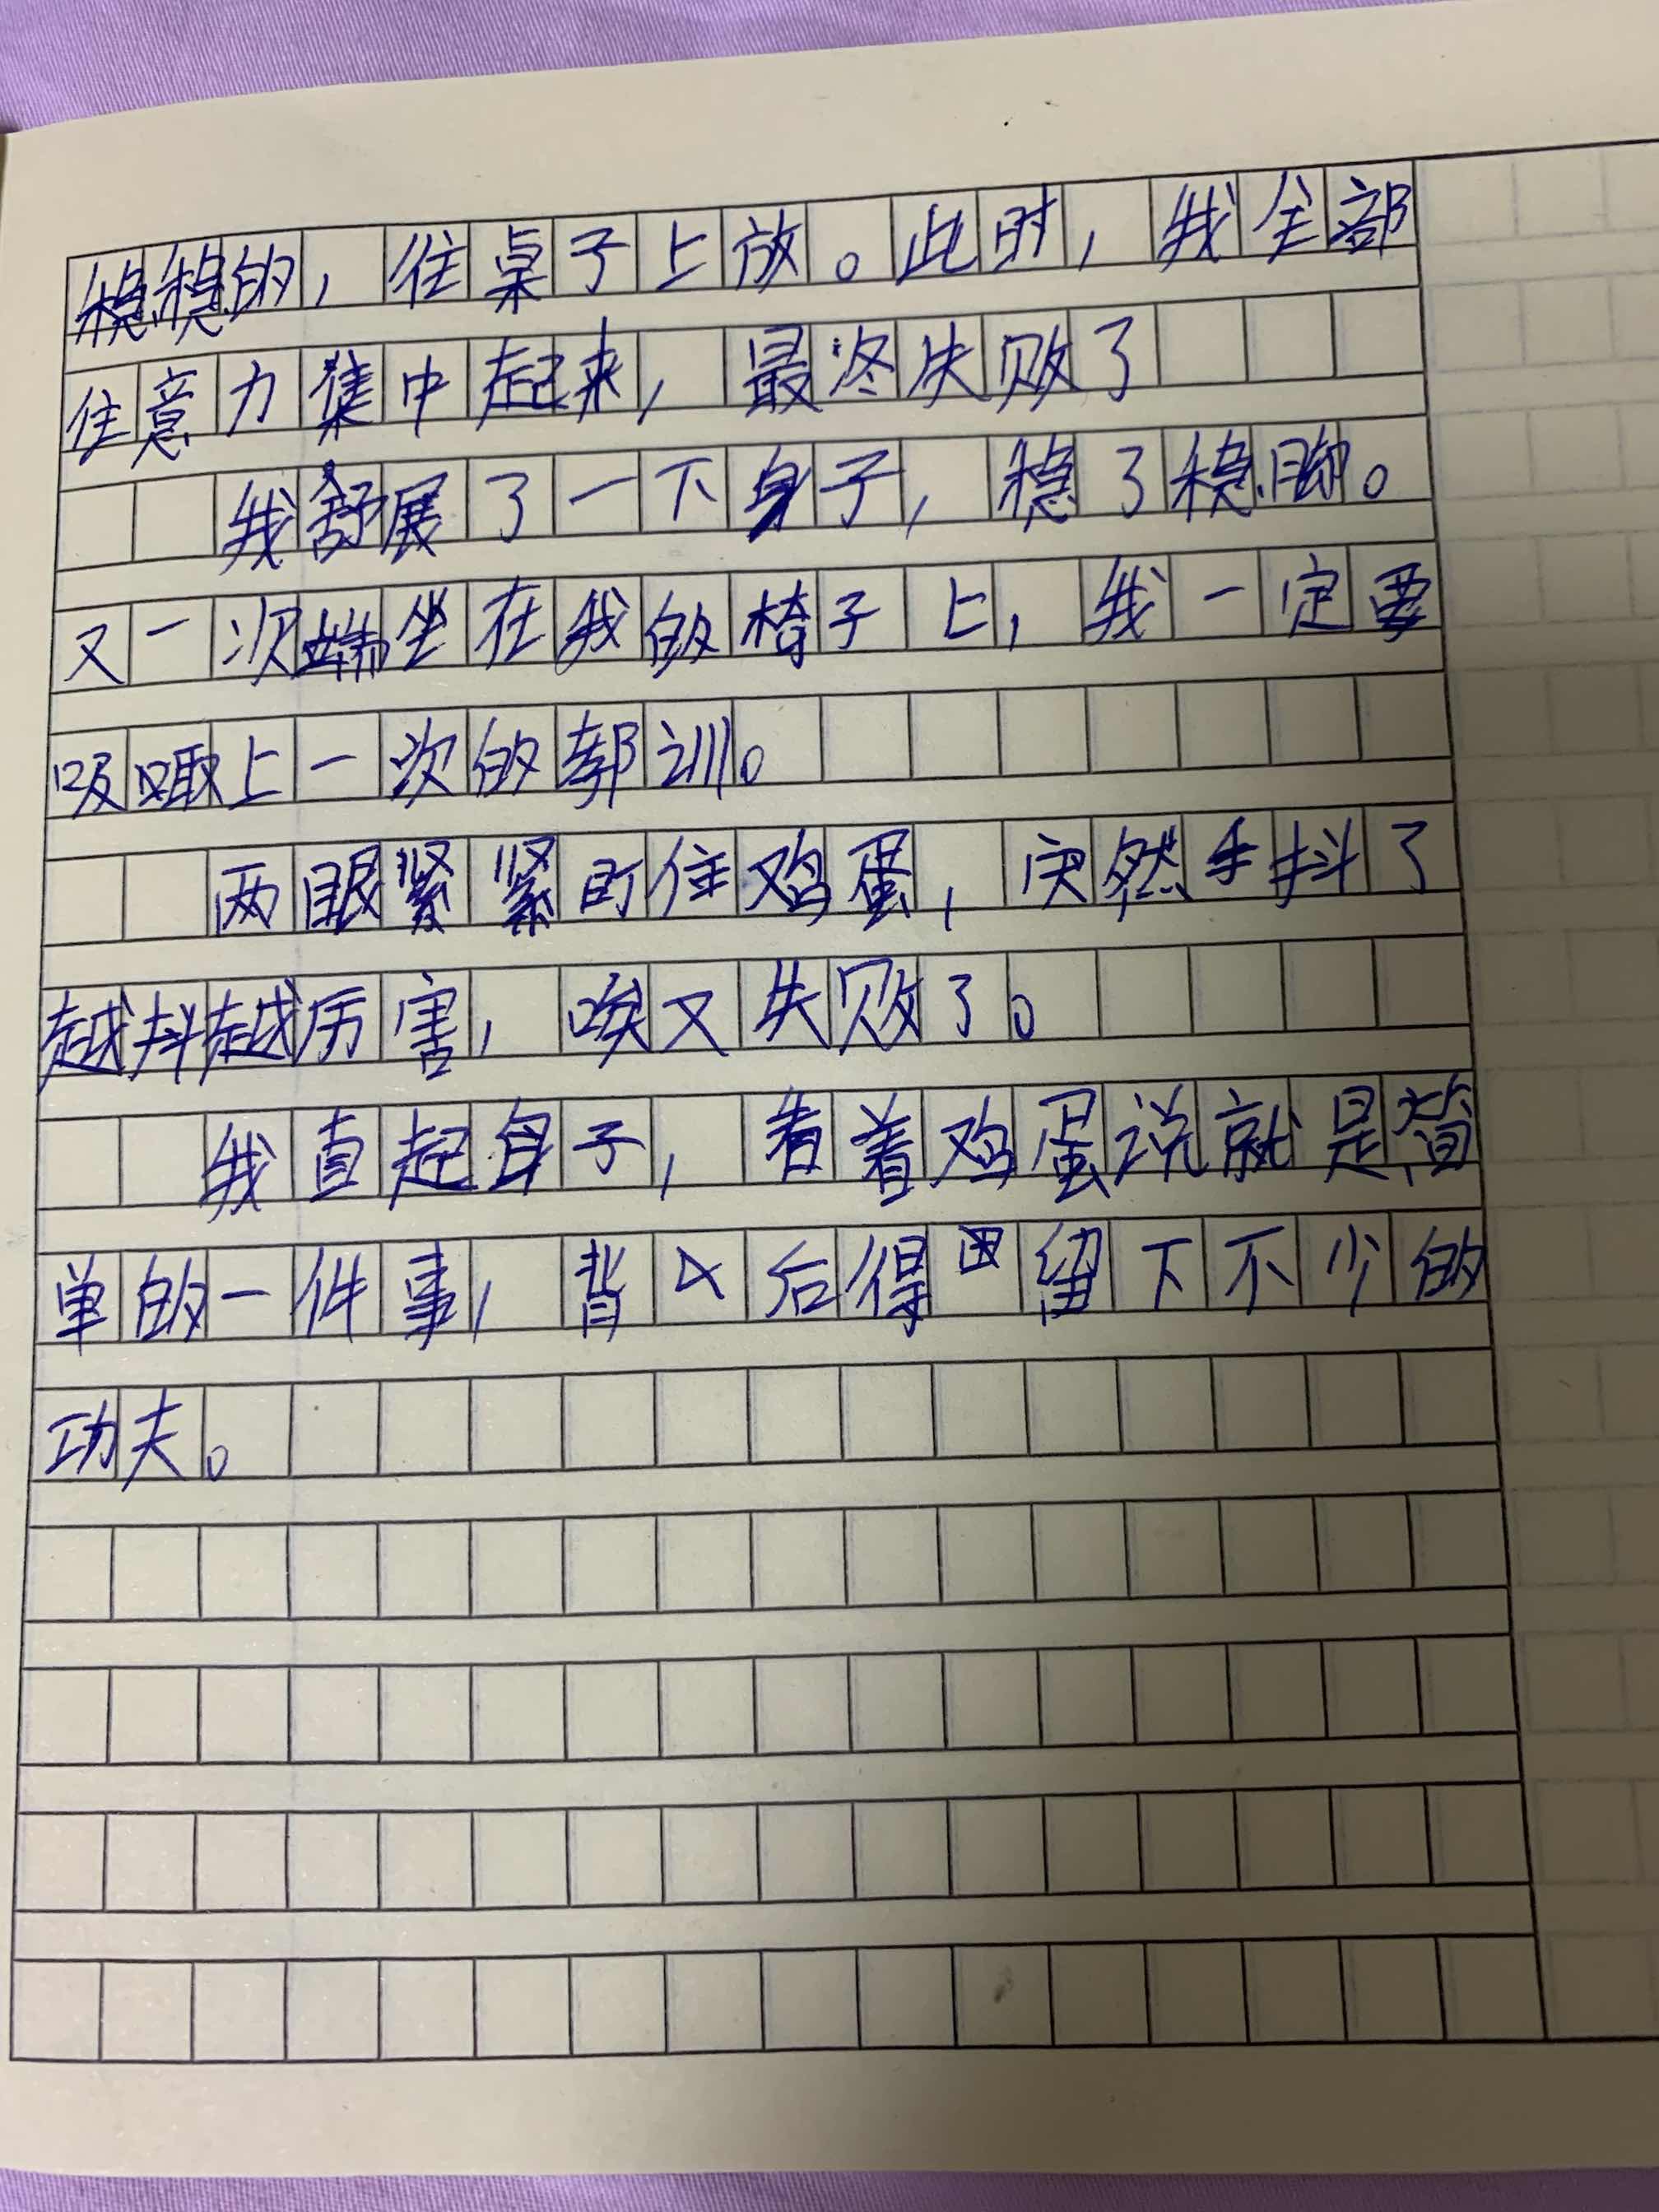 稳稳的，往桌子上放。此时，我全部
住意力集中起来，最终失败了
我舒展了一下身子，稳了稳脚。
又一次端坐在我的椅子上，我一定要
吸取上一次的教训。
两眼紧紧盯住鸡蛋，突然手抖了
越抖越厉害，唉又失败了。
我直起身子，看着鸡蛋说就是简
单的一件事，背后得留下不少的
功夫。